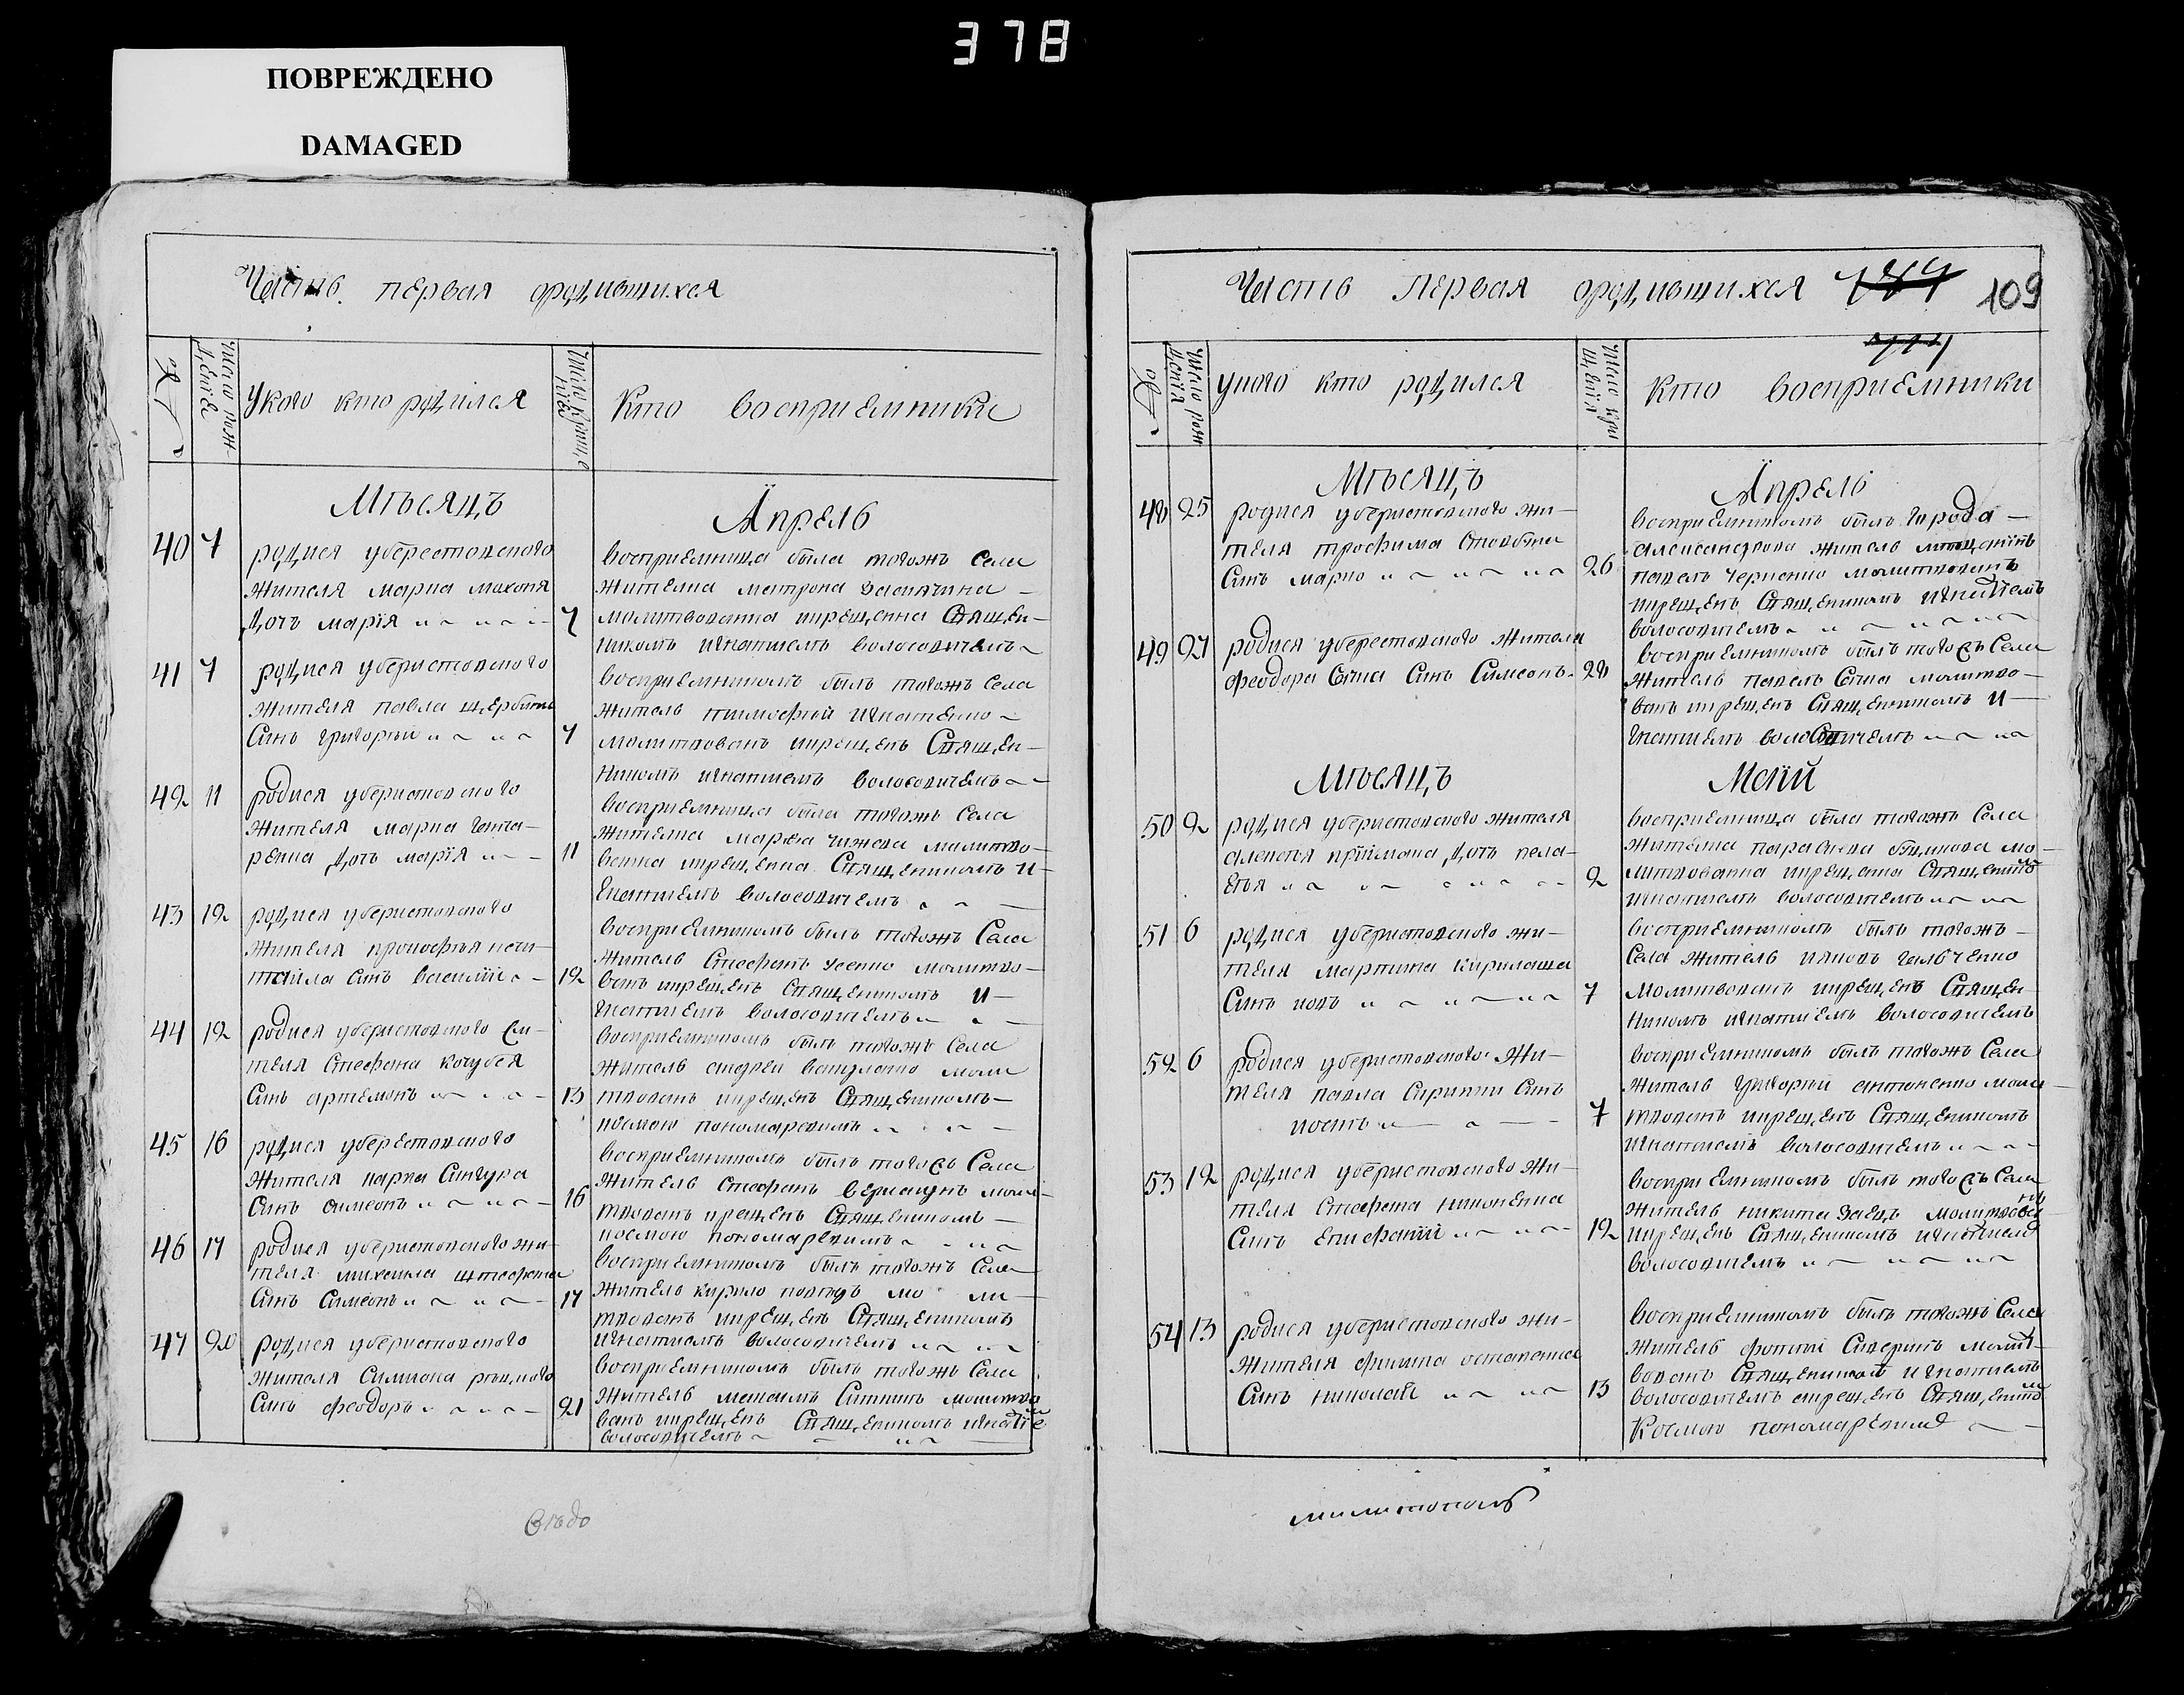 378
ПОВРЕЖДЕНО
DAMAGED
Часть первая ородившихся
№
Число рож-
денїе
Укого кто родился
Число креще
нїе
Кто восприемники
Мѣсяцъ
Апрель
40 7
родися уберестовского
жителя марка махоня
дочь марїя
7
восприемница была тогожъ села
жителка матрона
молитвованна икрещенна Священ-
никомъ игнатиемъ волосовичемъ
41 7
родися уберистовского
жителя павла щербины
Синъ григорїй
7
восприемникомъ былъ тогожъ села
житель тимофей игнатенко
молитвованъ икрещенъ Священ-
никомъ игнатиемъ волосовичемъ
42 11
родися уберистовского
жителя марка гонча-
ренка дочь марїя
11
восприемница была тогожъ села
жителка марѳа чижова молитво-
ванна икрещенна Священикомъ и-
гнатиемъ волосовичемъ
43 12
родися уберистовского
жителя прокофья неси-
тайла Синъ василїй
12
восприемникомъ былъ тогожъ Села
житель Стефанъ усенко молитво-
ванъ икрещенъ Священикомъ и-
гнатиемъ волосовичемъ
44 12
родися уберистовского жи-
теля Стефана кочубея
Синъ артемонъ
13
восприемникомъ былъ тогожъ Села
житель андрей ващуленко моли
твованъ икрещенъ Священикомъ
космою пономаревимъ
45 16
родися уберестовского
жителя карпа Сингура
Синъ симеонъ
16
восприемникомъ былъ тогожъ Села
житель Стефанъ вергунъ моли-
твованъ икрещенъ Священикомъ
космою пономаревимъ
46 17
родися уберистовского жи-
теля михаила штефана
Синъ Симеонъ
17
восприемникомъ былъ тогожъ Села
житель кирило мо ли-
твованъ икрещенъ Священикомъ
игнатиемъ волосовичемъ
47 20
родися уберистовского
жителя Симиона
Синъ феодоръ
21
восприемникомъ былъ тогожъ Села
житель максимъ Ситникъ молитво
ванъ икрещенъ Священикомъ игнатїе
волосовичемъ
Слѣдо
Часть первая ородившихся
109
№
Число рож
денїя
Укого кто родился
Число кре
щенїя
Кто восприемники
Мѣсяцъ
Апрель
48 25
родися уберистовского жи-
теля трофима Стовбы
Синъ марко
26
восприемникомъ былъ города
александрова житель мещанинъ
павелъ черненко молитвованъ
икрещенъ Священикомъ игнатїемъ
волосовичемъ
49 27
родися уберестовского жителя
феодора Сича Синъ Симеонъ
28
восприемникомъ былъ тогожъ Села
житель павелъ Сича молитво-
ванъ икрещенъ Священикомъ и-
гнатиемъ волосовичемъ
Мѣсяцъ
Маїй
50 2
родися уберистовского жителя
алексѣя прїймака дочь пела-
гѣя
2
восприемница была тогожъ Села
жителка параскева мо-
литвованна икрещенна Священико
мъ
игнатиемъ волосовичемъ
51 6
родися уберистовского жи-
теля мартина кирилаша
Синъ иовъ
7
восприемникомъ былъ тогожъ
Села житель иаковъ гальченко
молитвованъ икрещенъ Священ-
никомъ игнатиемъ волосовичемъ
52 6
родися уберистовского жи-
теля павла Скрипки Синъ
иоанъ
7
восприемникомъ былъ тогожъ Села
житель григорїй антоненко моли-
твованъ икрещенъ Священикомъ
игнатиемъ волосовичемъ
53 12
родися уберистовского жи-
теля Стефана никоненка
Синъ епифанїй
12
восприемникомъ былъ тогожъ Села
житель никита заецъ молитвова
нъ
икрещенъ Священикомъ игнатиемъ
волосовичемъ
54 13
родися уберистовского жи-
жителя филипа остапенка
Синъ николай
13
восприемникомъ былъ тогожъ Села
житель фотий Сиверинъ молит-
вованъ Священикомъ игнатиемъ
волосовичемъ акрещенъ Священико
мъ
Космою пономаревимъ